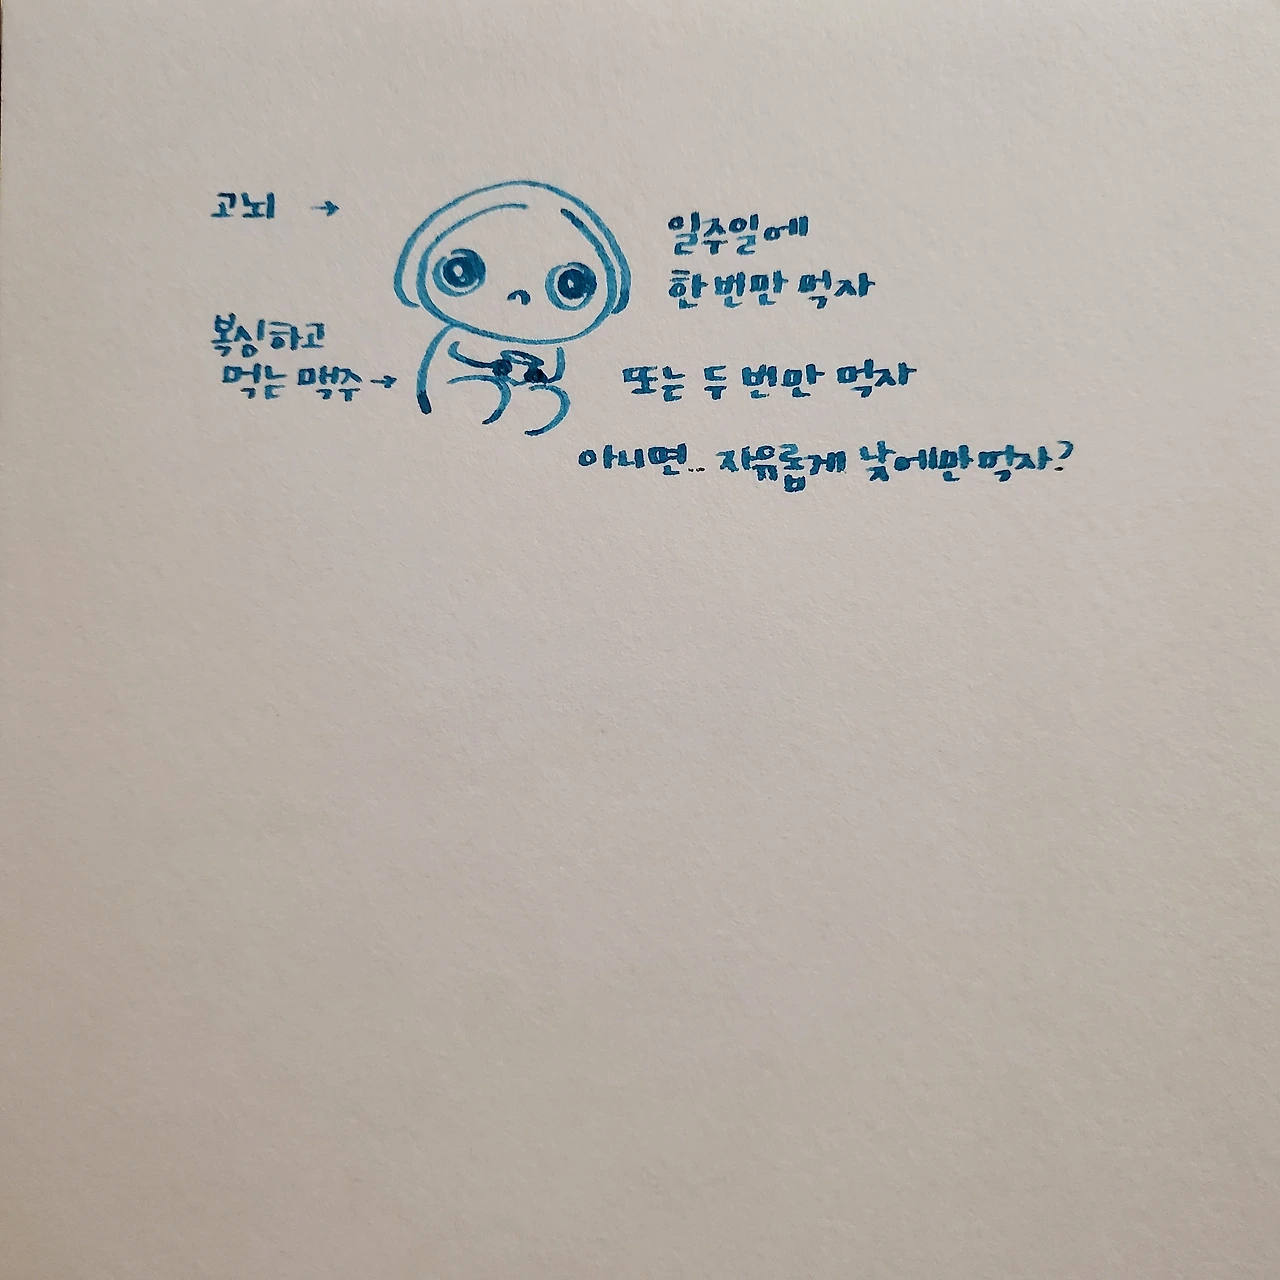 고뇌 →
복싱하고
먹는 맥주 →
일주일에
한 번만 먹자
또는 두 번만 먹자
아니면.. 자유롭게 낮에만 먹자?